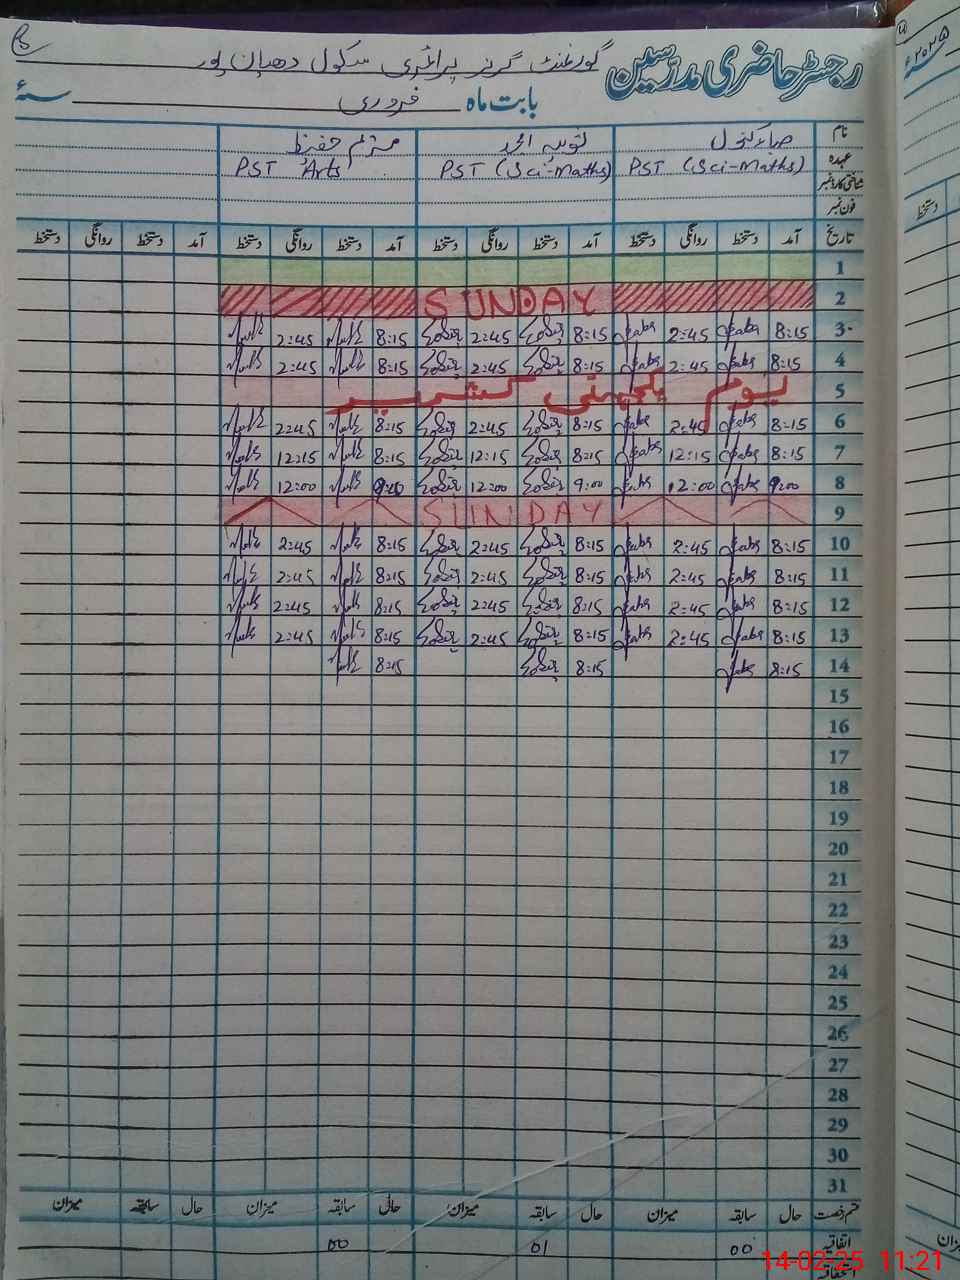 رجسٹر حاضری مدرسین گورنمنٹ گرلز پرائمری سکول دھپان پور
بابت ماہ فروری سنۂ
نام صباء کنول ثوبیہ احمد مریم حفیظ
عہدہ PST (Sci-Maths) PST (Sci-Maths) PST Arts
شناختی کارڈ نمبر
فون نمبر
تاریخ آمد دستخط روانگی دستخط آمد دستخط روانگی دستخط آمد دستخط روانگی دستخط آمد دستخط روانگی دستخط
1
2 SUNDAY
3 8:15 2:45 8:15 2:45 8:15 2:45
4 8:15 2:45 8:15 2:45 8:15 2:45
5 یوم یکجہتی کشمیر
6 8:15 2:45 8:15 2:45 8:15 2:45
7 8:15 12:15 8:15 12:15 8:15 12:15
8 9:00 12:00 9:00 12:00 9:00 12:00
9 SUNDAY
10 8:15 2:45 8:15 2:45 8:15 2:45
11 8:15 2:45 8:15 2:45 8:15 2:45
12 8:15 2:45 8:15 2:45 8:15 2:45
13 8:15 2:45 8:15 2:45 8:15 2:45
14 8:15 8:15 8:15
15
16
17
18
19
20
21
22
23
24
25
26
27
28
29
30
31
قسم رخصت حال سابقہ میزان حال سابقہ میزان حال سابقہ میزان حال سابقہ میزان
اتفاقیہ 00 01 00
استحقاقیہ
14-02-25 11:21
سنۂ ۲۰۲۵ء
دستخط
میزان